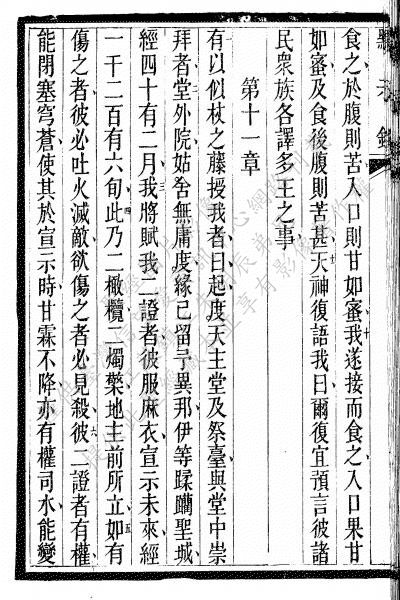 食之於腹則苦入口則甘如蜜我遂接而食之入口果甘
如蜜及食後腹則苦甚天神復語我曰爾復宜預言彼諸
民衆族各譯多王之事
第十一章
有以似杖之藤授我者曰起度天主堂及祭臺與堂中崇
拜者堂外院姑舍無庸度緣已留予異邦伊等蹂躪聖城
經四十有二月我將賦我二證者彼服麻衣宣示未來經
一千二百有六旬此乃二橄欖二燭檠地主前所立如有
傷之者彼必吐火滅敵欲傷之者必見殺彼二證者有權
能閉塞穹蒼使其於宣示時甘霖不降亦有權司水能變